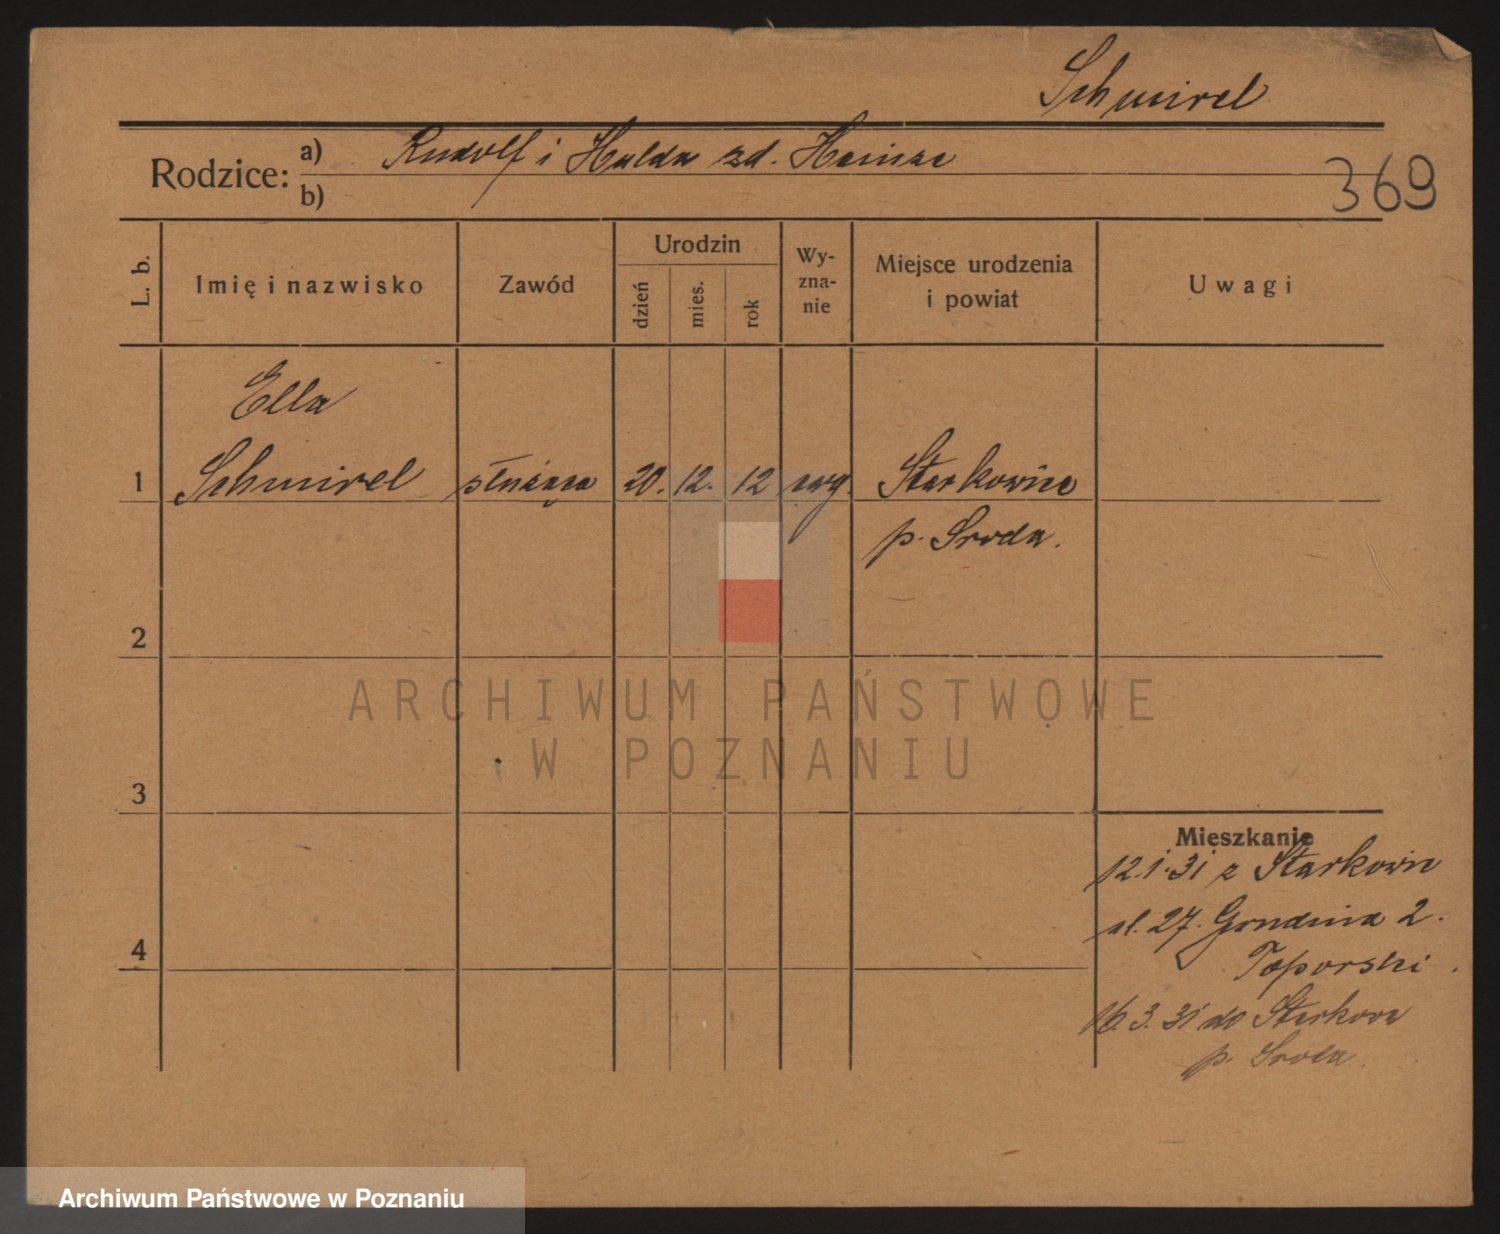 Schmirel
Rodzice: a) Rudolf i Hulda zd. Heinze
b)
369
L. b.
Imię i nazwisko
Zawód
Urodzin
dzień
mies.
rok
Wy-
zna-
nie
Miejsce urodzenia
i powiat
Uwagi
Ella
1 Schmirel służąca 20. 12. 12 ewg. Starkowice
p. Sroda.
2
ARCHIWUM PAŃSTWOWE
W POZNANIU
3
Mieszkanie
12.1.31 z Starkowic
ul. 27. Grudnia 2.
Toporski.
4
16.3.31 do
p. Sroda.
Archiwum Państwowe w Poznaniu